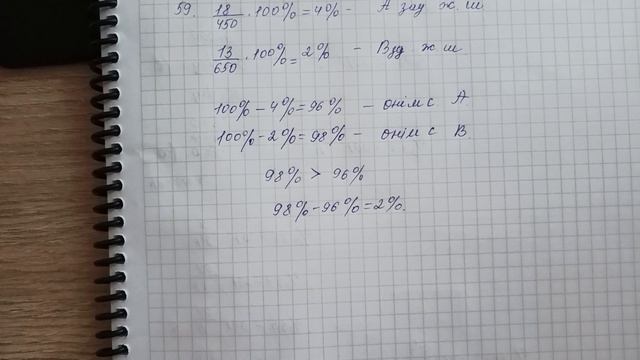 59. 18/450 · 100% = 4% - А зау ж. ш
13/650 · 100% = 2% - В ж ш
100% - 4% = 96% - өнім с А
100% - 2% = 98% - өнім с В
98% > 96%
98% - 96% = 2%.